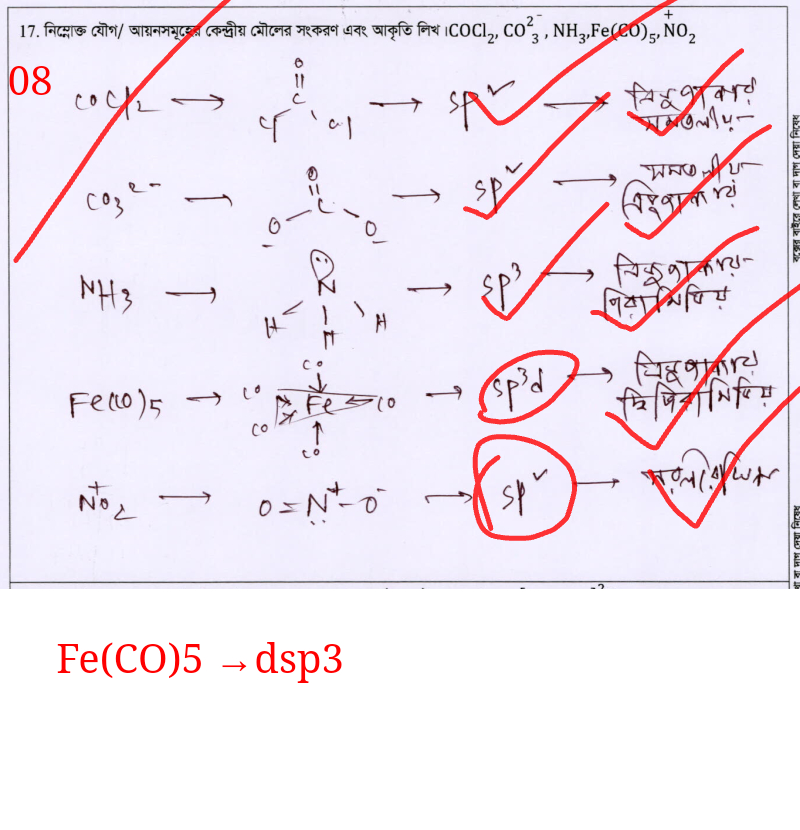 17. নিম্নোক্ত যৌগ/ আয়নসমূহের কেন্দ্রীয় মৌলের সংকরণ এবং আকৃতি লিখ।COCl₂, CO₃²⁻, NH₃,Fe(CO)₅,N⁺O₂
08
COCl₂ → O C Cl Cl → sp² → ত্রিভুজাকার
সমতলীয়
CO₃²⁻ → O C O⁻ O⁻ → sp² → সমতলীয়
ত্রিভুজাকার
NH₃ → N H H H → sp³ → ত্রিভুজাকার
পিরামিডীয়
Fe(CO)5 → CO CO Fe CO CO CO → sp³d → ত্রিভুজাকার
দ্বিপিরামিডীয়
N⁺O₂ → O=N⁺-O⁻ → sp² → সরলরৈখিক
বক্সের বাইরে লেখা বা দাগ দেয়া নিষেধ
খা বা দাগ দেয়া নিষেধ
Fe(CO)5 →dsp3